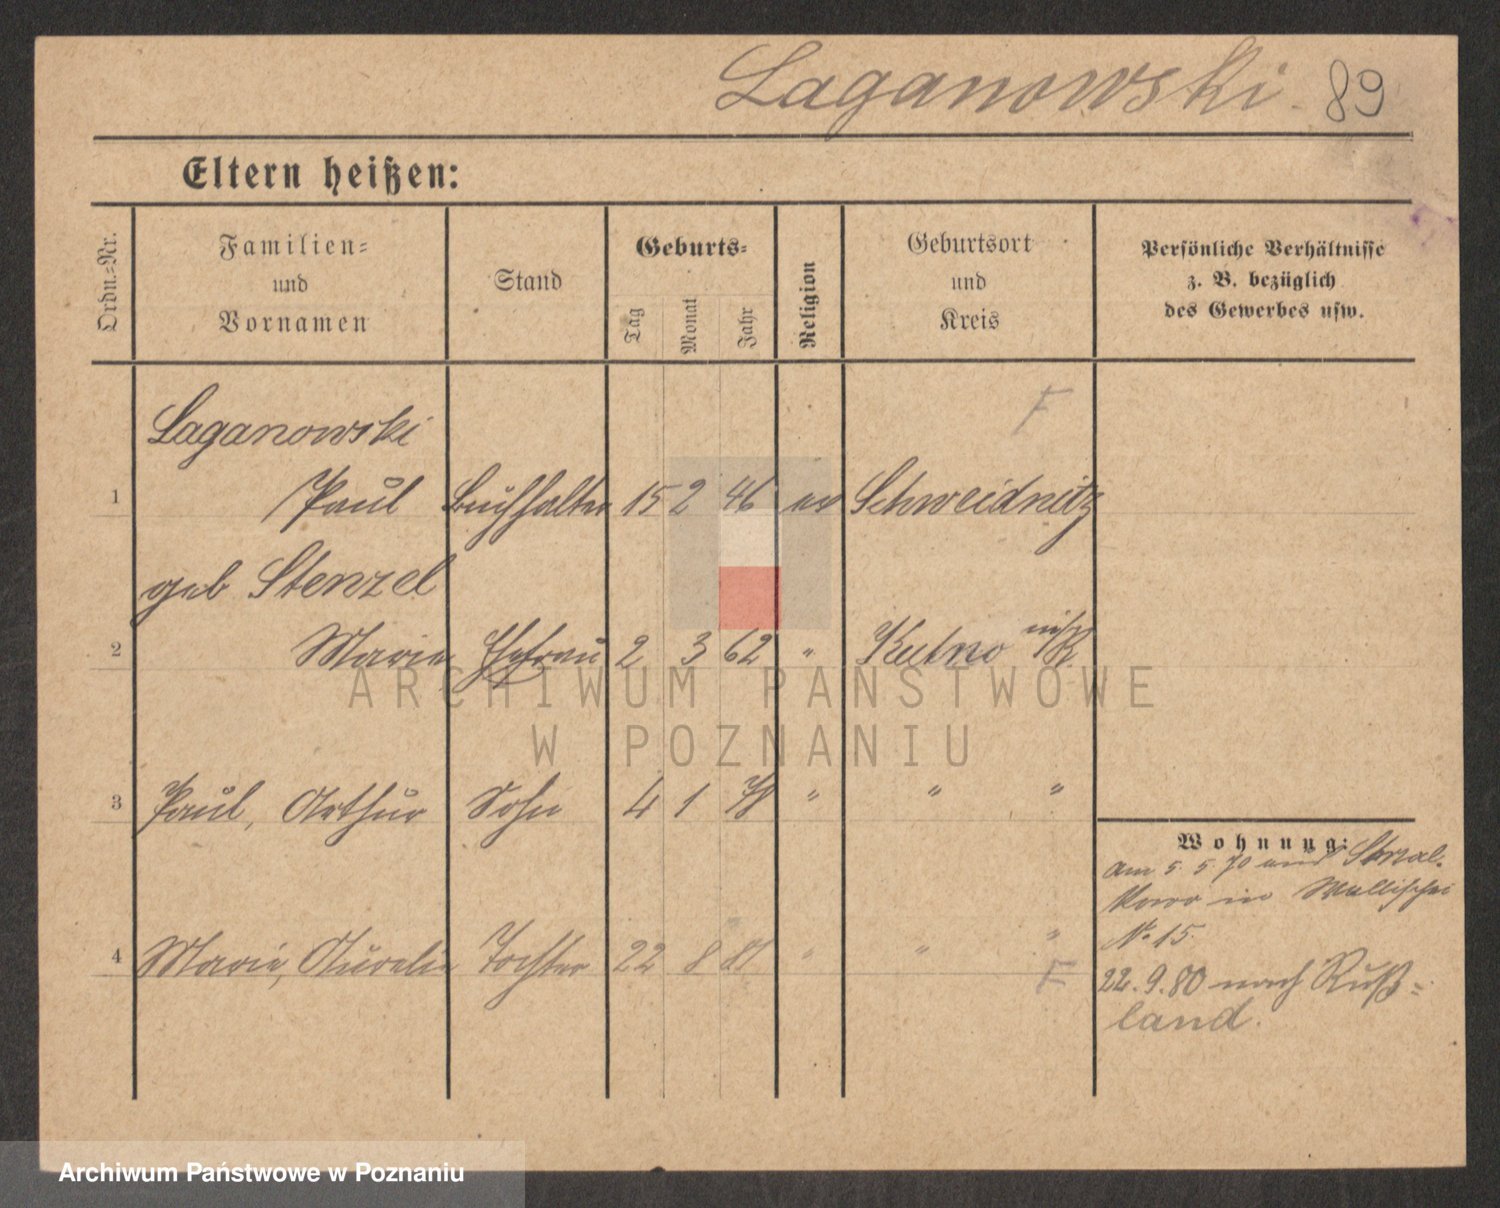 Laganowski. 89
Eltern heißen:
Ordn.-Nr.
Familien-
und
Vornamen
Stand
Geburts-
Tag
Monat
Jahr
Religion
Geburtsort
und
Kreis
Persönliche Verhältnisse
z. B. bezüglich
des Gewerbes usw.
F
Laganowski
1 Paul Buchhalter 15 2 46 ev Schweidnitz
geb Stenzel
2 Marie Ehefrau 2 3 62 " Kutno
3 Paul, Arthur Sohn 4 1 " " "
4 Marie, Aurelie Tochter 22 8 81 " " "
F
Wohnung:
am 5. 5. 90 aus Strzal-
kowo in Wallischei
No 15.
22. 9. 80 nach Ruß-
land.
ARCHIWUM PAŃSTWOWE
W POZNANIU
Archiwum Państwowe w Poznaniu